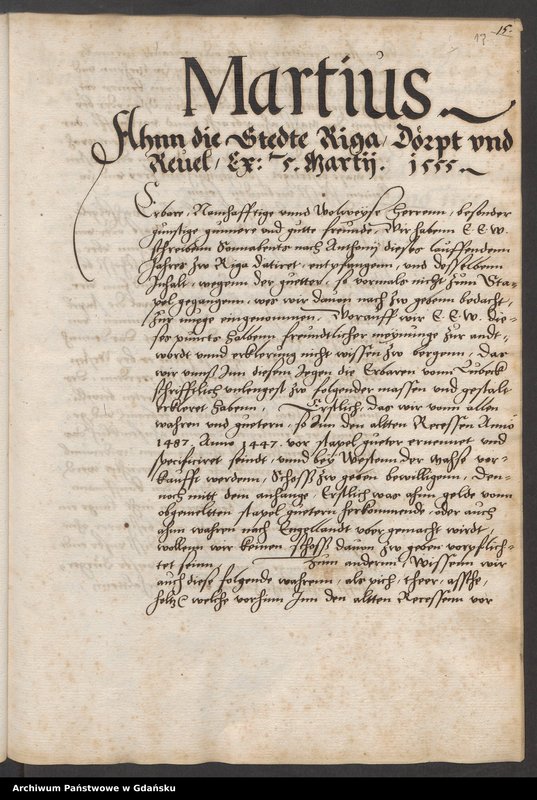 13
15.
Martius
Ahnn die Stedte Riga, Dörpt vnd
Reuel, Ex: 5. Martij. 1555.
Erbare, Nonhafftige vnnd Wolweyse Herrenn, besonder
günstige gunnere vnd gutte freunde, Wir habenn E. E. W.
schreibenn Sonnabents nach Anthonij dieses lauffendenn
Jahres zw Riga datiret, entpfangenn, vnd desselbenn
Inhalt, wegenn der guetter, so vormals nicht zum Sta-
pel gegangenn, wes wir dauon nach zw gebenn bedacht,
zur nuege eingenommen. Worauff wir E. E. W. die-
ses puncts halbenn freundtlicher meynunge zur andt-
wordt vnnd erklerung nicht wissen zw bergenn, Das
wir vnns Inn diesem Jegen die Erbaren vonn Lübeck
schrifftlich vnlengest zw folgender massen vnd gestalt
erkleret habenn, Erstlich, das wir vonn allen
wahren vnd guetern, so Inn den altten Recessen Anno
1487. Anno 1447. vor stapel guetor ernennet vnd
specificiret seindt, vnnd bey Westenn der Mahse vor-
kaufft werdenn, Schoss zw geben bewilligenn, Den-
noch mitt dem anhange, Erstlich was ahnn gelde vonn
obgemeltten stapel guetern herkommende, oder auch
ahnn wahren nach Engellandt vber gemacht wirdt,
wollenn wir keinen schoss dauon zw geben vorpflich-
tet seinn, Zum andernn, Wissenn wir
auch diese folgende wahrenn, als pich, theer, assche,
holtz welche vorhinn Inn den altten Recessenn vor
Archiwum Państwowe w Gdańsku